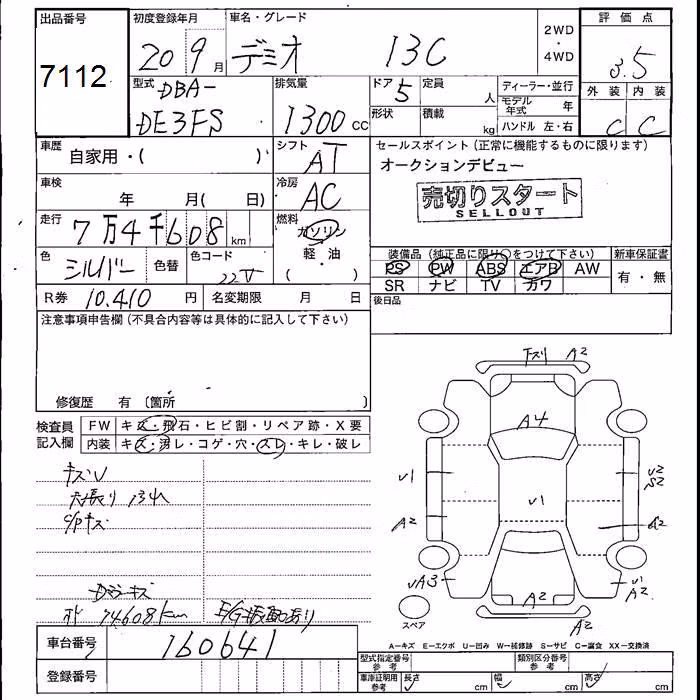 出品番号
7112
初度登録年月
20 9 月
車名・グレード
デミオ 13C
2WD
・
4WD
評価点
3.5
型式
DBA-
DE3FS
排気量
1300 cc
ドア
5
定員
人
形状
積載
kg
ディーラー・並行
モデル年式 年
ハンドル 左・右
外装 内装
C C
車歴
自家用・( )
シフト
AT
セールスポイント (正常に機能するものに限ります)
オークションデビュー
売切りスタート
SELLOUT
車検
年 月( 日)
冷房
AC
走行
7万4千608 km
燃料
ガソリン
軽・油
( )
色
シルバー
色替
色コード
22V
装備品 (純正品に限り○をつけて下さい)
PS PW ABS エアB AW
SR ナビ TV カワ
新車保証書
有・無
R券 10.410 円
名変期限 月 日
後日品
注意事項申告欄 (不具合内容等は具体的に記入して下さい)
修復歴 有 〔箇所 〕
検査員
記入欄
FW キズ・飛石・ヒビ割・リペア跡・X要
内装 キズ・汚レ・コゲ・穴・スレ・キレ・破レ
キズV
C/Pキズ
74608km
E/G振動あり
下スリ A2
A4
V1
V1
A2
V2
S2
A2
VA3
V1
A2
A2
A2
スペア
A－キズ E－エクボ U－凹み W－補修跡 S－サビ C－腐食 XX－交換済
車台番号
160641
登録番号
型式指定番号
参考
類別区分番号
参考
車庫証明用
参考
長さ cm 幅 cm 高さ cm